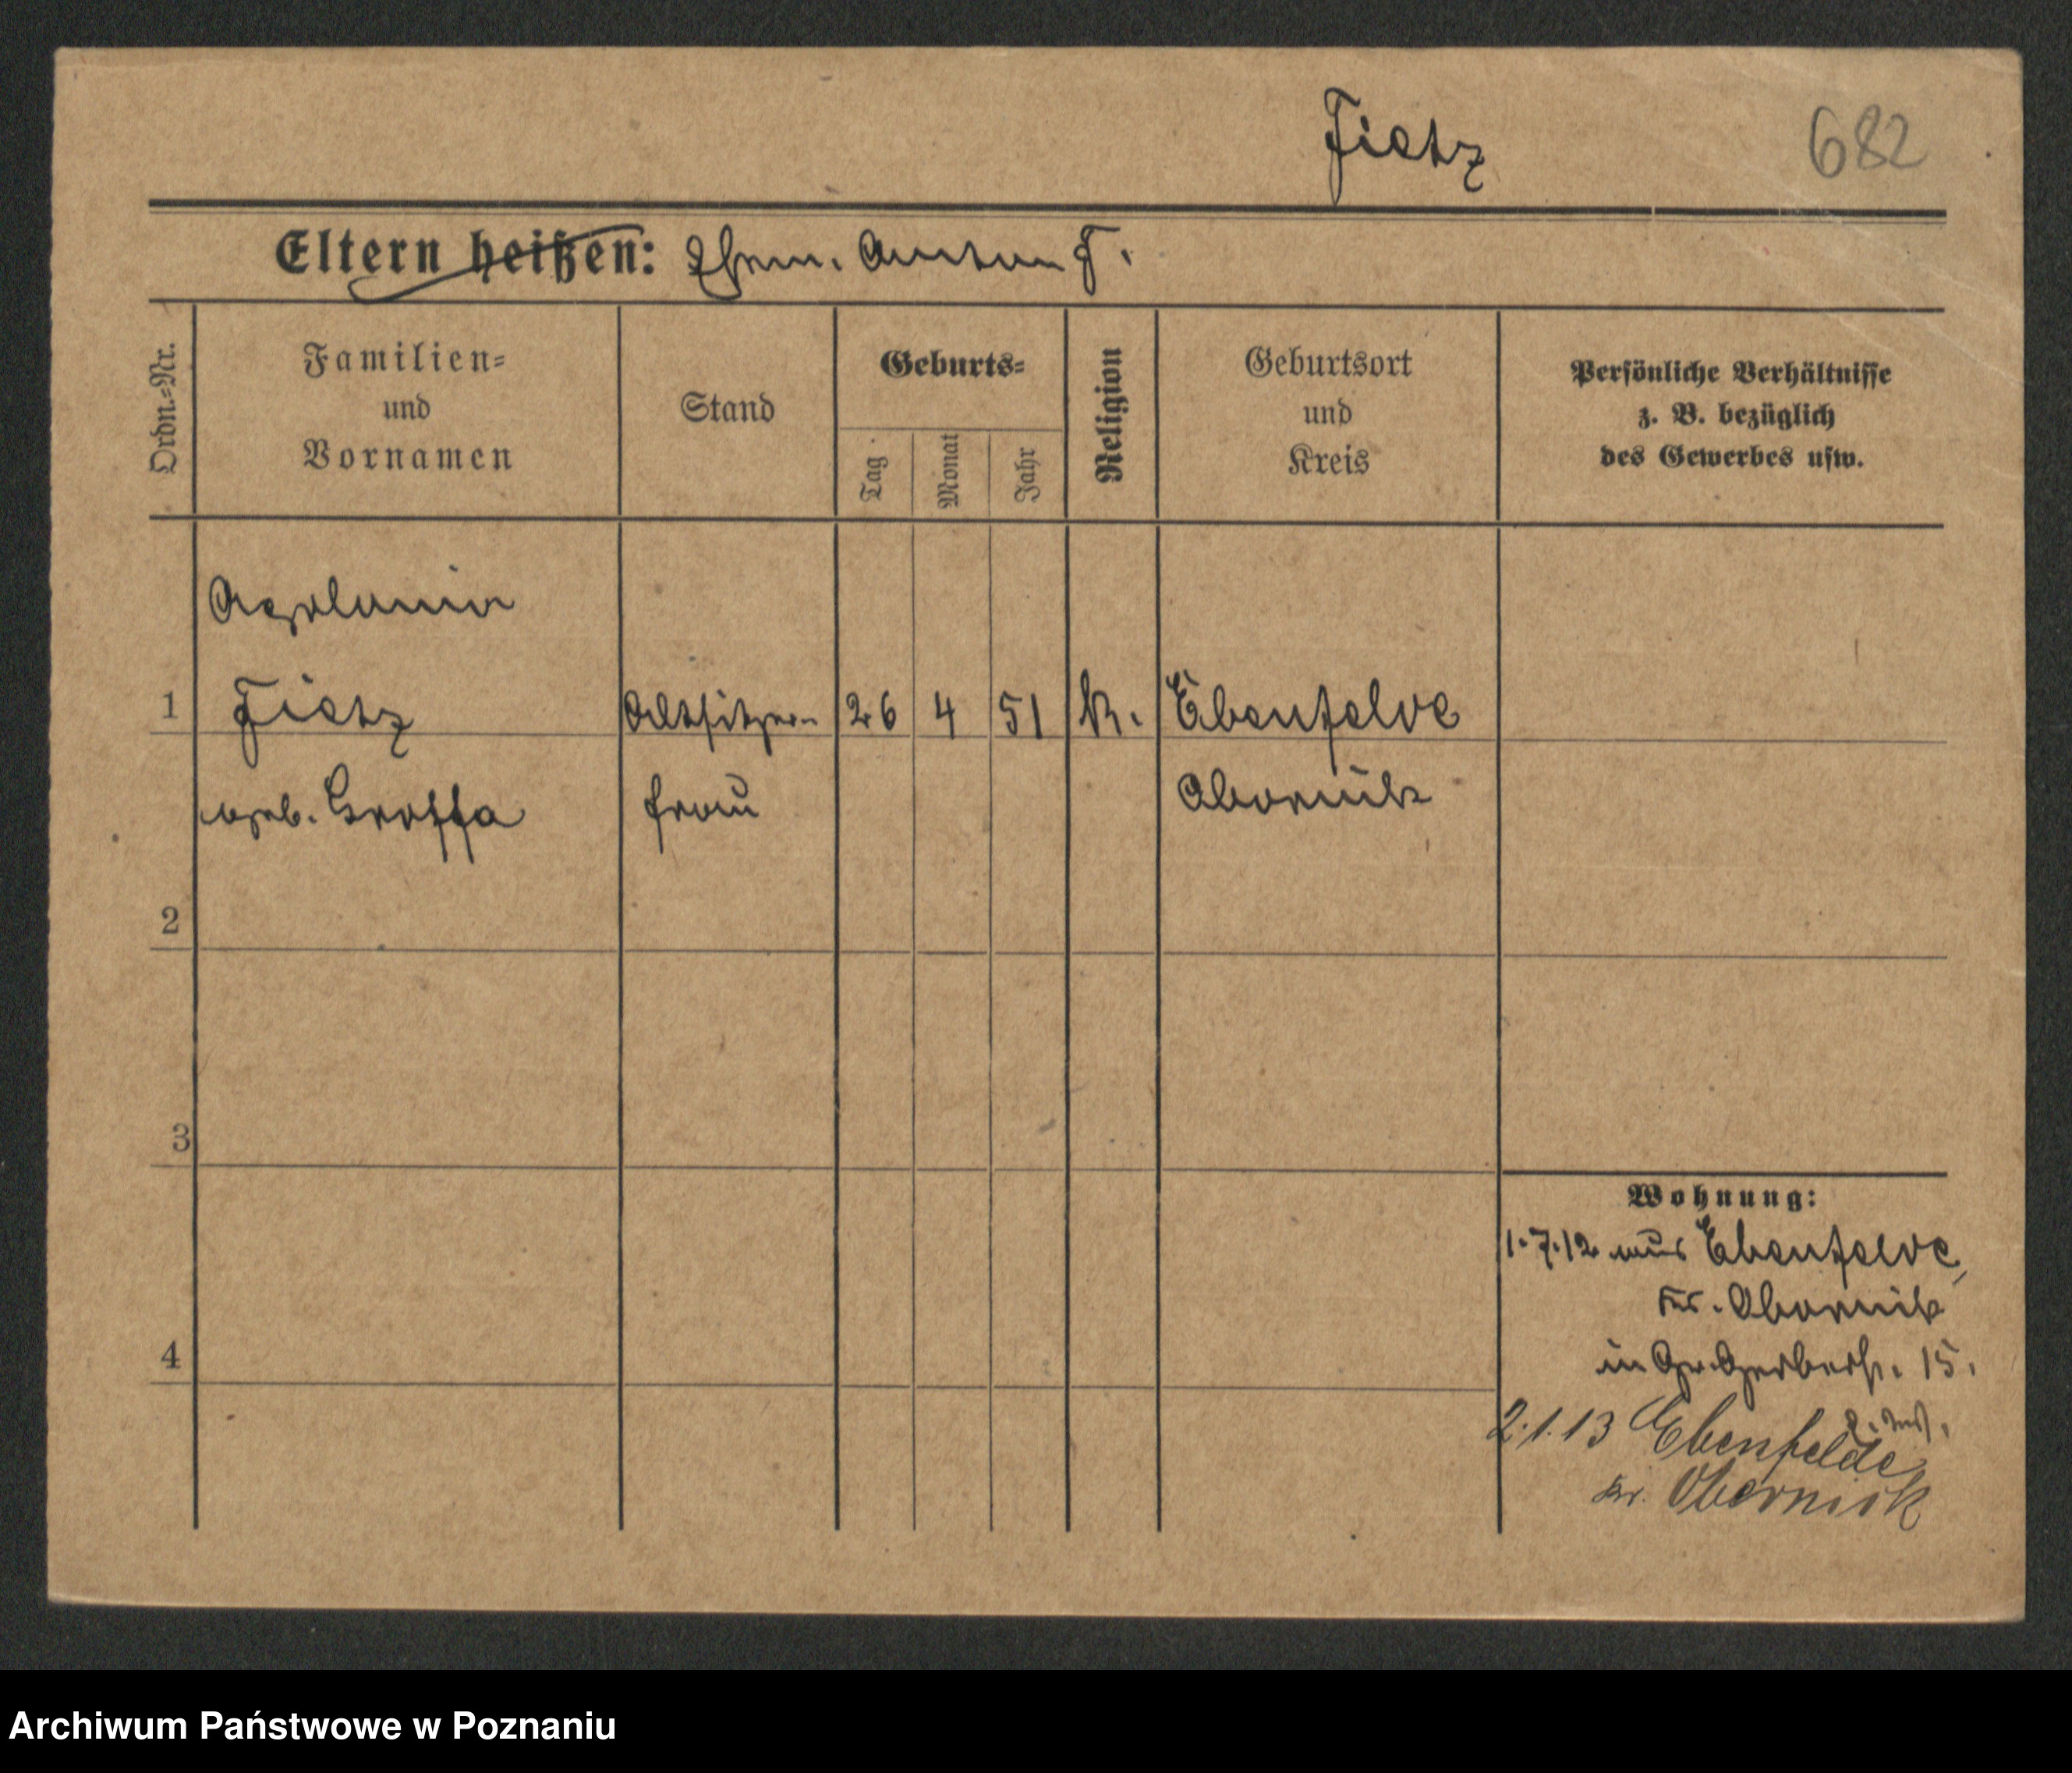 Fietz
682
Eltern heißen: Ehem. Anton F.
Ordn.-Nr.
Familien-
und
Vornamen
Stand
Geburts-
Tag
Monat
Jahr
Religion
Geburtsort
und
Kreis
Persönliche Verhältnisse
z. B. bezüglich
des Gewerbes usw.
Apolonia
1 Fietz Altsitzer- 26 4 51 K. Ebenfelde
geb. frau Obornik
2
3
4
Wohnung:
1.7.12 aus Ebenfelde,
Kr. Obornik
in Gr. Gerberst. 15.
2.1.13 Ebenfelde
Kr. Obornik
Archiwum Państwowe w Poznaniu